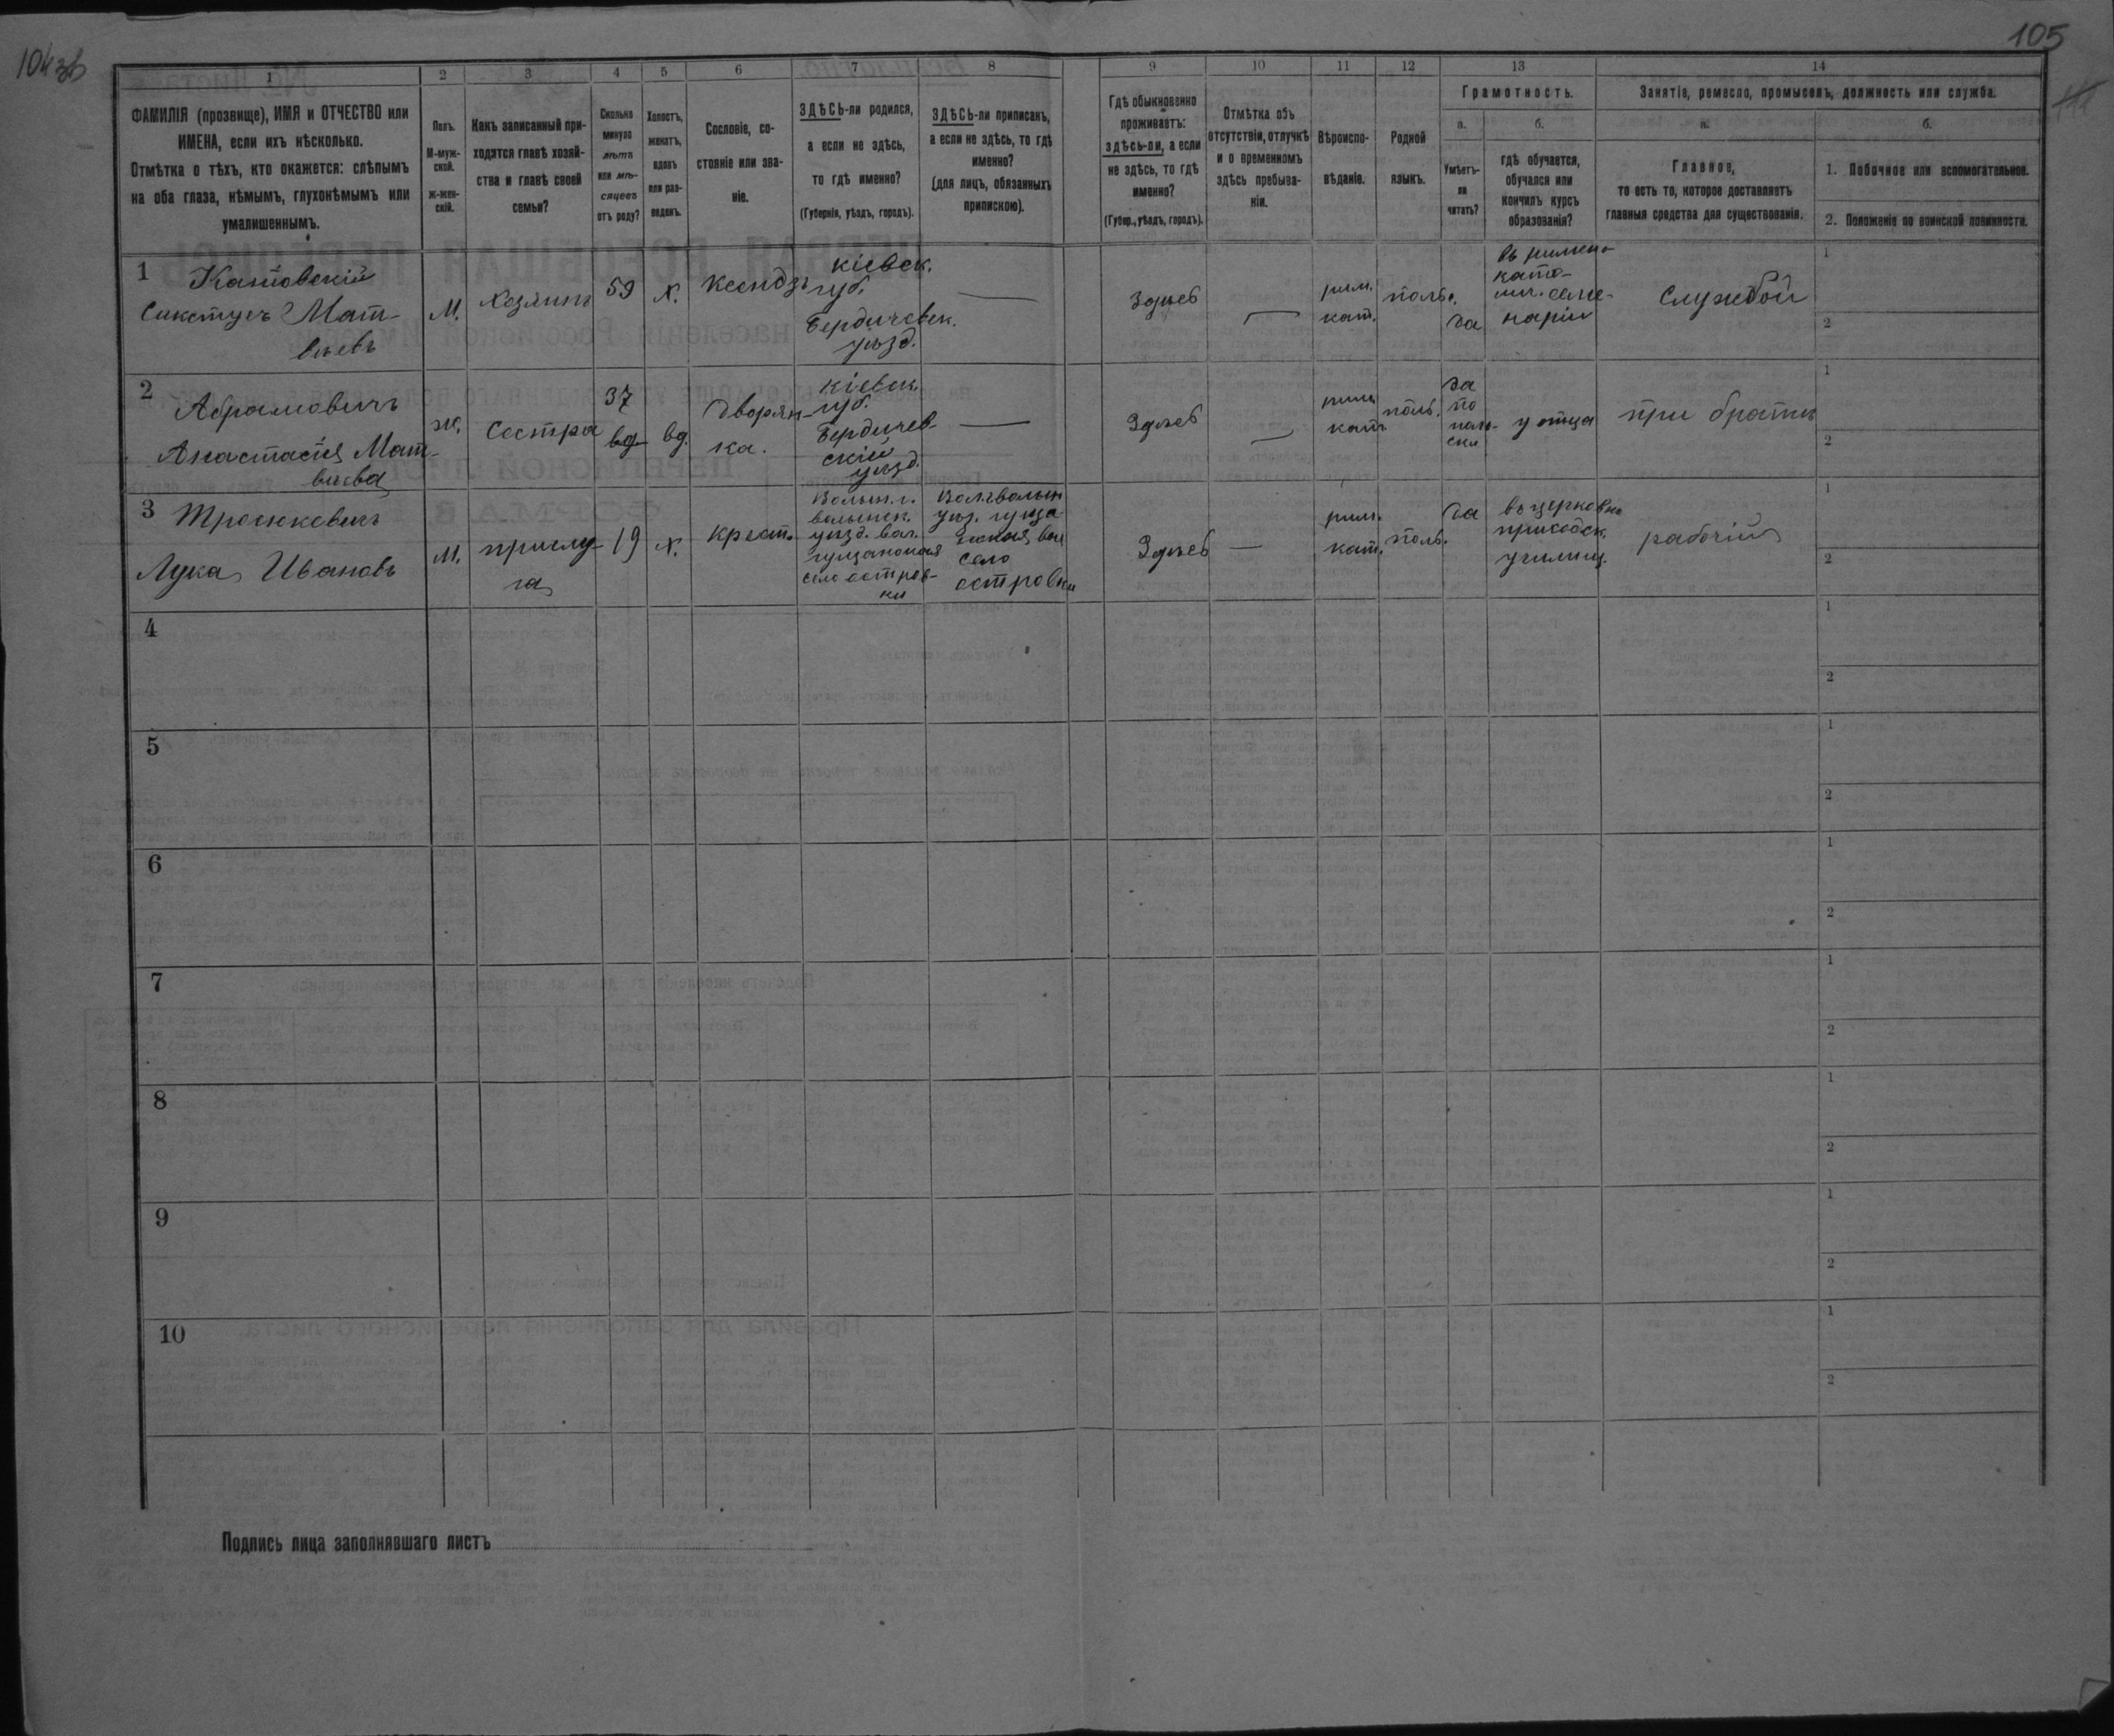 104 зв
105
1
2
3
4
5
6
7
8
9
10
11
12
13
14
ФАМИЛІЯ (прозвище), ИМЯ и ОТЧЕСТВО или
ИМЕНА, если ихъ нѣсколько.
Отмѣтка о тѣхъ, кто окажется: слѣпымъ
на оба глаза, нѣмымъ, глухонѣмымъ или
умалишеннымъ.
Полъ.
М-муж-
ской.
ж-жен-
скій.
Какъ записанный при-
ходятся главѣ хозяй-
ства и главѣ своей
семьи?
Сколько
минуло
лѣтъ
или мѣ-
сяцевъ
отъ роду?
Холостъ,
женатъ,
вдовъ
или раз-
веденъ.
Сословіе, со-
стояніе или зва-
ніе.
ЗДѢСЬ-ли родился,
а если не здѣсь,
то гдѣ именно?
(Губернія, уѣздъ, городъ).
ЗДѢСЬ-ли приписанъ,
а если не здѣсь, то гдѣ
именно?
(для лицъ, обязанныхъ
припискою).
Гдѣ обыкновенно
проживаетъ:
здѣсь-ли, а если
не здѣсь, то гдѣ
именно?
(Губер., уѣздъ, городъ).
Отмѣтка объ
отсутствіи, отлучкѣ
и о временномъ
здѣсь пребыва-
ніи.
Вѣроиспо-
вѣданіе.
Родной
языкъ.
Грамотность.
а.
Умѣетъ-
ли
читать?
б.
гдѣ обучается,
обучался или
кончилъ курсъ
образованія?
Занятіе, ремесло, промыселъ, должность или служба.
а.
Главное,
то есть то, которое доставляетъ
главныя средства для существованія.
б.
1. Побочное или вспомогательное.
2. Положеніе по воинской повинности.
1
Катовскій
Сикстусъ Мат-
вѣевъ
М.
Хозяинъ
59
Х.
Ксендзъ
Кіевск.
губ.
Бердичевск.
уѣзд.
Здѣсь
рим.
кат.
поль.
да
въ римско-
като-
лич. семи-
наріи
службой
1
2
2
Абрамовичъ
Анастасія Мат-
вѣева
ж.
Сестра
37
вд
вд.
Дворян-
ка.
Кіевск.
губ.
Бердичев-
скій
уѣзд.
Здѣсь
рим.
кат.
поль.
да
по
поль-
ски
у отца
при братѣ
1
2
3
Лука Ивановъ
М.
прислу-
га
19
Х.
крест.
Волын. г.
волынск.
уѣзд. вол.
село остров-
ки
село
островки
Здѣсь
рим.
кат.
поль.
да
въ церковно
приходск.
училищ.
рабочій
1
2
4
1
2
5
1
2
6
1
2
7
1
2
8
1
2
9
1
2
10
1
2
Подпись лица заполнявшаго листъ